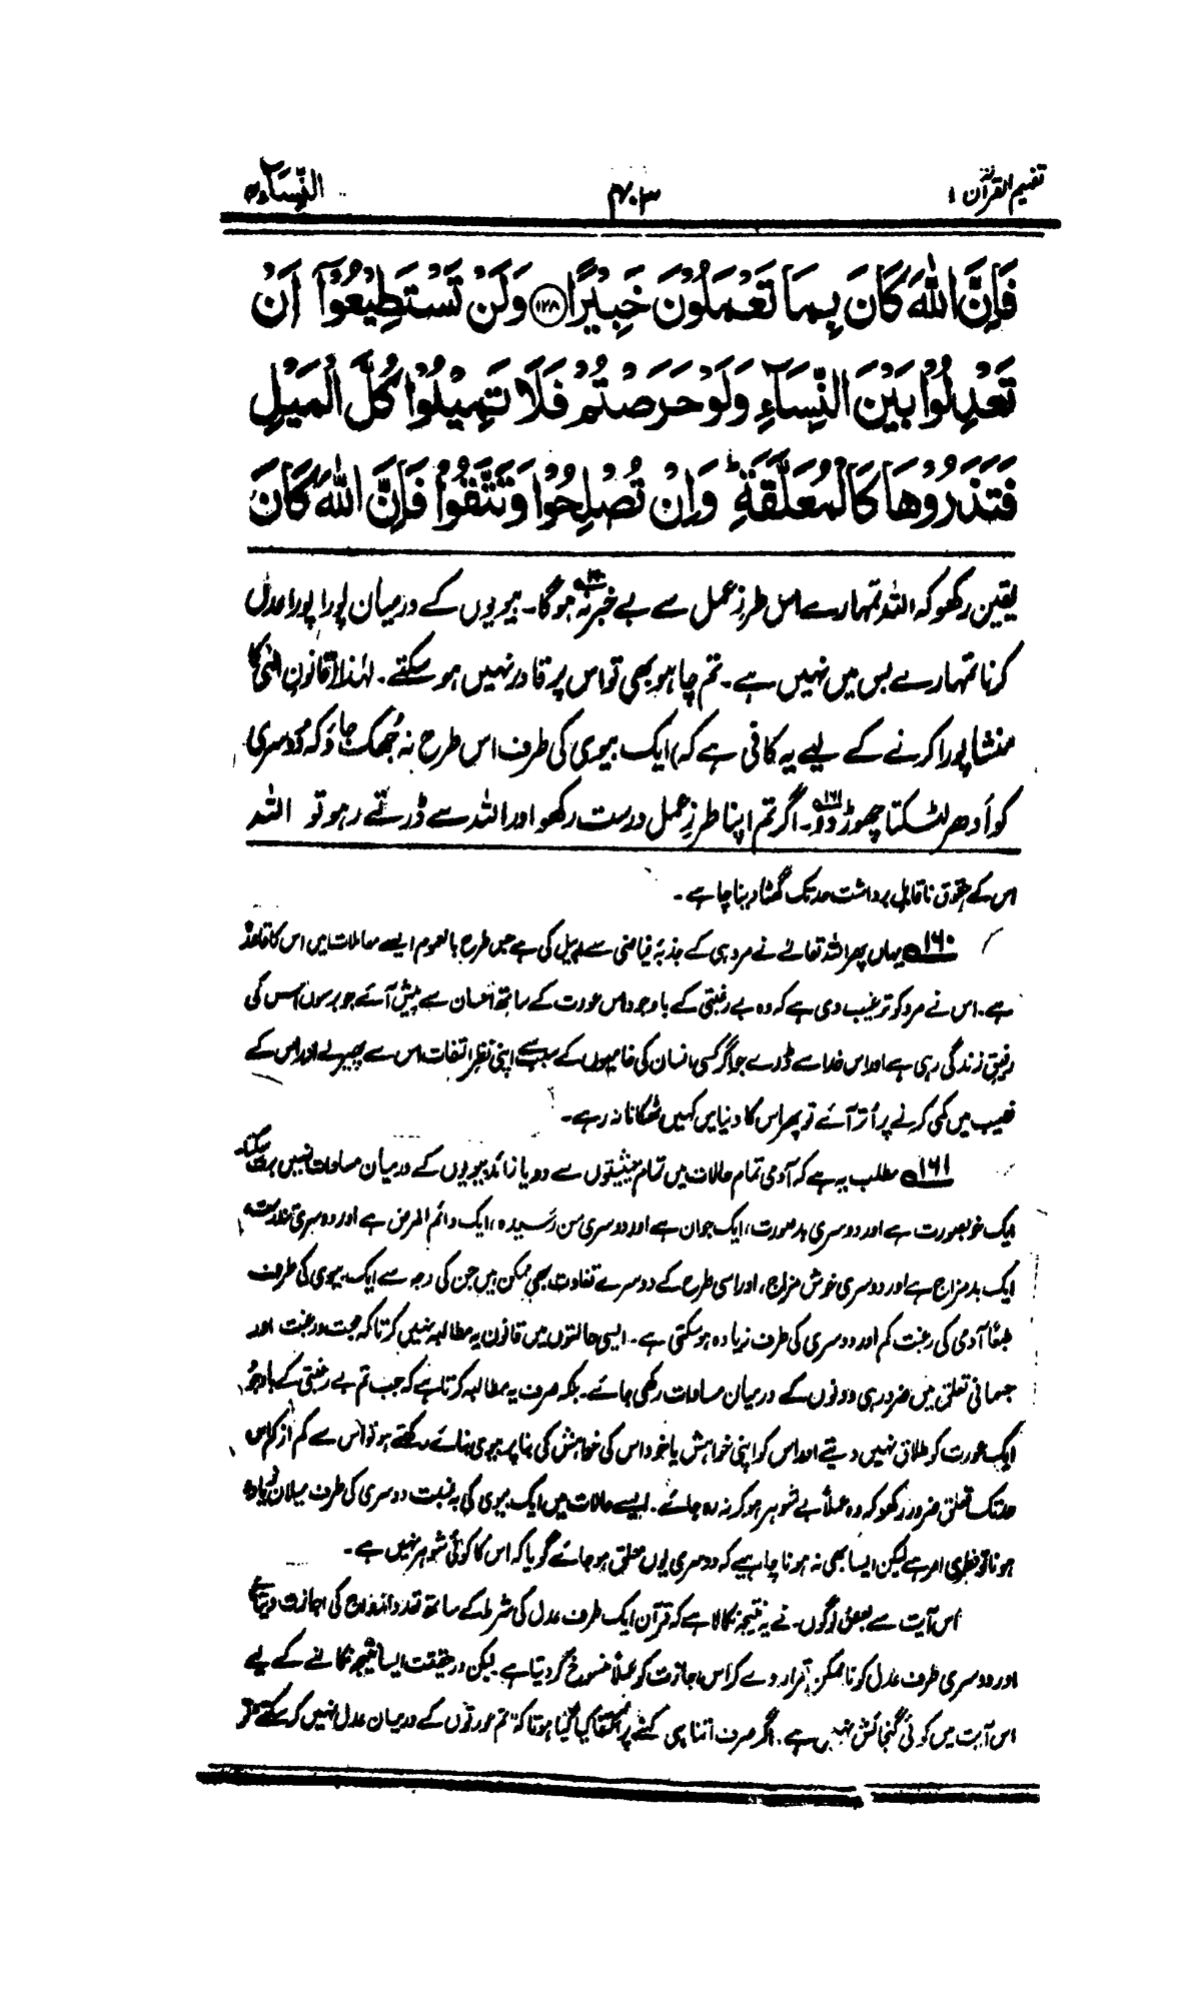 تفہیم القرآن ۱
۴۰۳
النساء ۴
فَاِنَّ اللّٰهَ كَانَ بِمَا تَعْمَلُوْنَ خَبِيْرًا ﴿۱۲۸﴾ وَلَنْ تَسْتَطِيْعُوْٓا اَنْ
تَعْدِلُوْا بَيْنَ النِّسَآءِ وَلَوْ حَرَصْتُمْ فَلَا تَمِيْلُوْا كُلَّ الْمَيْلِ
فَتَذَرُوْهَا كَالْمُعَلَّقَةِ ؕ وَاِنْ تُصْلِحُوْا وَتَتَّقُوْا فَاِنَّ اللّٰهَ كَانَ
یقین رکھو کہ اللہ تمہارے اس طرزِ عمل سے بے خبر نہ ہوگا۔ بیویوں کے درمیان پورا پورا عدل
کرنا تمہارے بس میں نہیں ہے۔ تم چاہو بھی تو اس پر قادر نہیں ہو سکتے۔ لہٰذا (قانونِ الٰہی کا
منشا پورا کرنے کے لیے یہ کافی ہے کہ) ایک بیوی کی طرف اس طرح نہ جُھک جاؤ کہ دُوسری
کو اُدھر لٹکتا چھوڑ دو۱۶۱۔ اگر تم اپنا طرزِ عمل درست رکھو اور اللہ سے ڈرتے رہو تو اللہ
اس کے حقوق ناقابلِ برداشت حد تک گھٹا دینا چاہے۔
۱۶۰ یہاں پھر اللہ تعالےٰ نے مرد ہی کے جذبۂ فیاضی سے اپیل کی ہے جس طرح بالعموم ایسے معاملات میں اس کا قاعدہ
ہے۔ اس نے مرد کو ترغیب دی ہے کہ وہ بے رغبتی کے باوجود اس عورت کے ساتھ احسان سے پیش آئے جو برسوں اس کی
رفیقِ زندگی رہی ہے اور اس خدا سے ڈرے جو اگر کسی انسان کی خامیوں کے سبب سے اپنی نظرِ التفات اس سے پھیر لے اور اس کے
نصیب میں کمی کرنے پر اُتر آئے تو پھر اس کا دنیا میں کہیں ٹھکانا نہ رہے۔
۱۶۱ مطلب یہ ہے کہ آدمی تمام حالات میں تمام حیثیتوں سے دو یا زائد بیویوں کے درمیان مساوات نہیں برت سکتا۔
ایک خوبصورت ہے اور دوسری بدصورت، ایک جوان ہے اور دوسری سن رسیدہ، ایک دائم المرض ہے اور دوسری تندرست،
ایک بدمزاج ہے اور دوسری خوش مزاج، اور اسی طرح کے دوسرے تفاوت بھی ممکن ہیں جن کی وجہ سے ایک بیوی کی طرف
طبعًا آدمی کی رغبت کم اور دوسری کی طرف زیادہ ہو سکتی ہے۔ ایسی حالتوں میں قانون یہ مطالبہ نہیں کرتا کہ محبت و رغبت اور
جسمانی تعلق میں ضرور ہی دونوں کے درمیان مساوات رکھی جائے۔ بلکہ صرف یہ مطالبہ کرتا ہے کہ جب تم بے رغبتی کے باوجود
ایک عورت کو طلاق نہیں دیتے اور اس کو اپنی خواہش یا خود اس کی خواہش کی بنا پر بیوی بنائے رکھتے ہو تو اس سے کم از کم اس
حد تک تعلق ضرور رکھو کہ وہ عملاً بے شوہر ہو کر نہ رہ جائے۔ ایسے حالات میں ایک بیوی کی بہ نسبت دوسری کی طرف میلان زیادہ
ہونا تو فطری امر ہے لیکن ایسا بھی نہ ہونا چاہیے کہ دوسری یوں معلق ہو جائے گویا کہ اس کا کوئی شوہر نہیں ہے۔
اس آیت سے بعض لوگوں نے یہ نتیجہ نکالا ہے کہ قرآن ایک طرف عدل کی شرط کے ساتھ تعدد ازواج کی اجازت دیتا ہے
اور دوسری طرف عدل کو ناممکن قرار دے کر اس اجازت کو عملاً منسوخ کر دیتا ہے۔ لیکن درحقیقت ایسا نتیجہ نکالنے کے لیے
اس آیت میں کوئی گنجائش نہیں ہے۔ اگر صرف اتنا ہی کہنے پر اکتفا کیا گیا ہوتا کہ "تم عورتوں کے درمیان عدل نہیں کر سکتے" تو